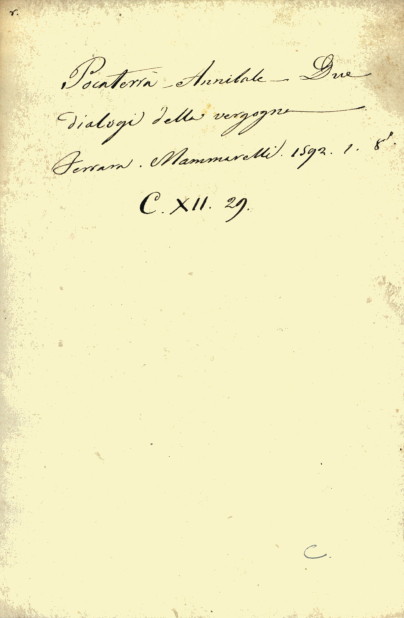 r.
Pocaterra - Annibale - Due
dialogi della vergogna
Ferrara. Mammarelli. 1592. 1. 8°.
C. XII. 29.
C.